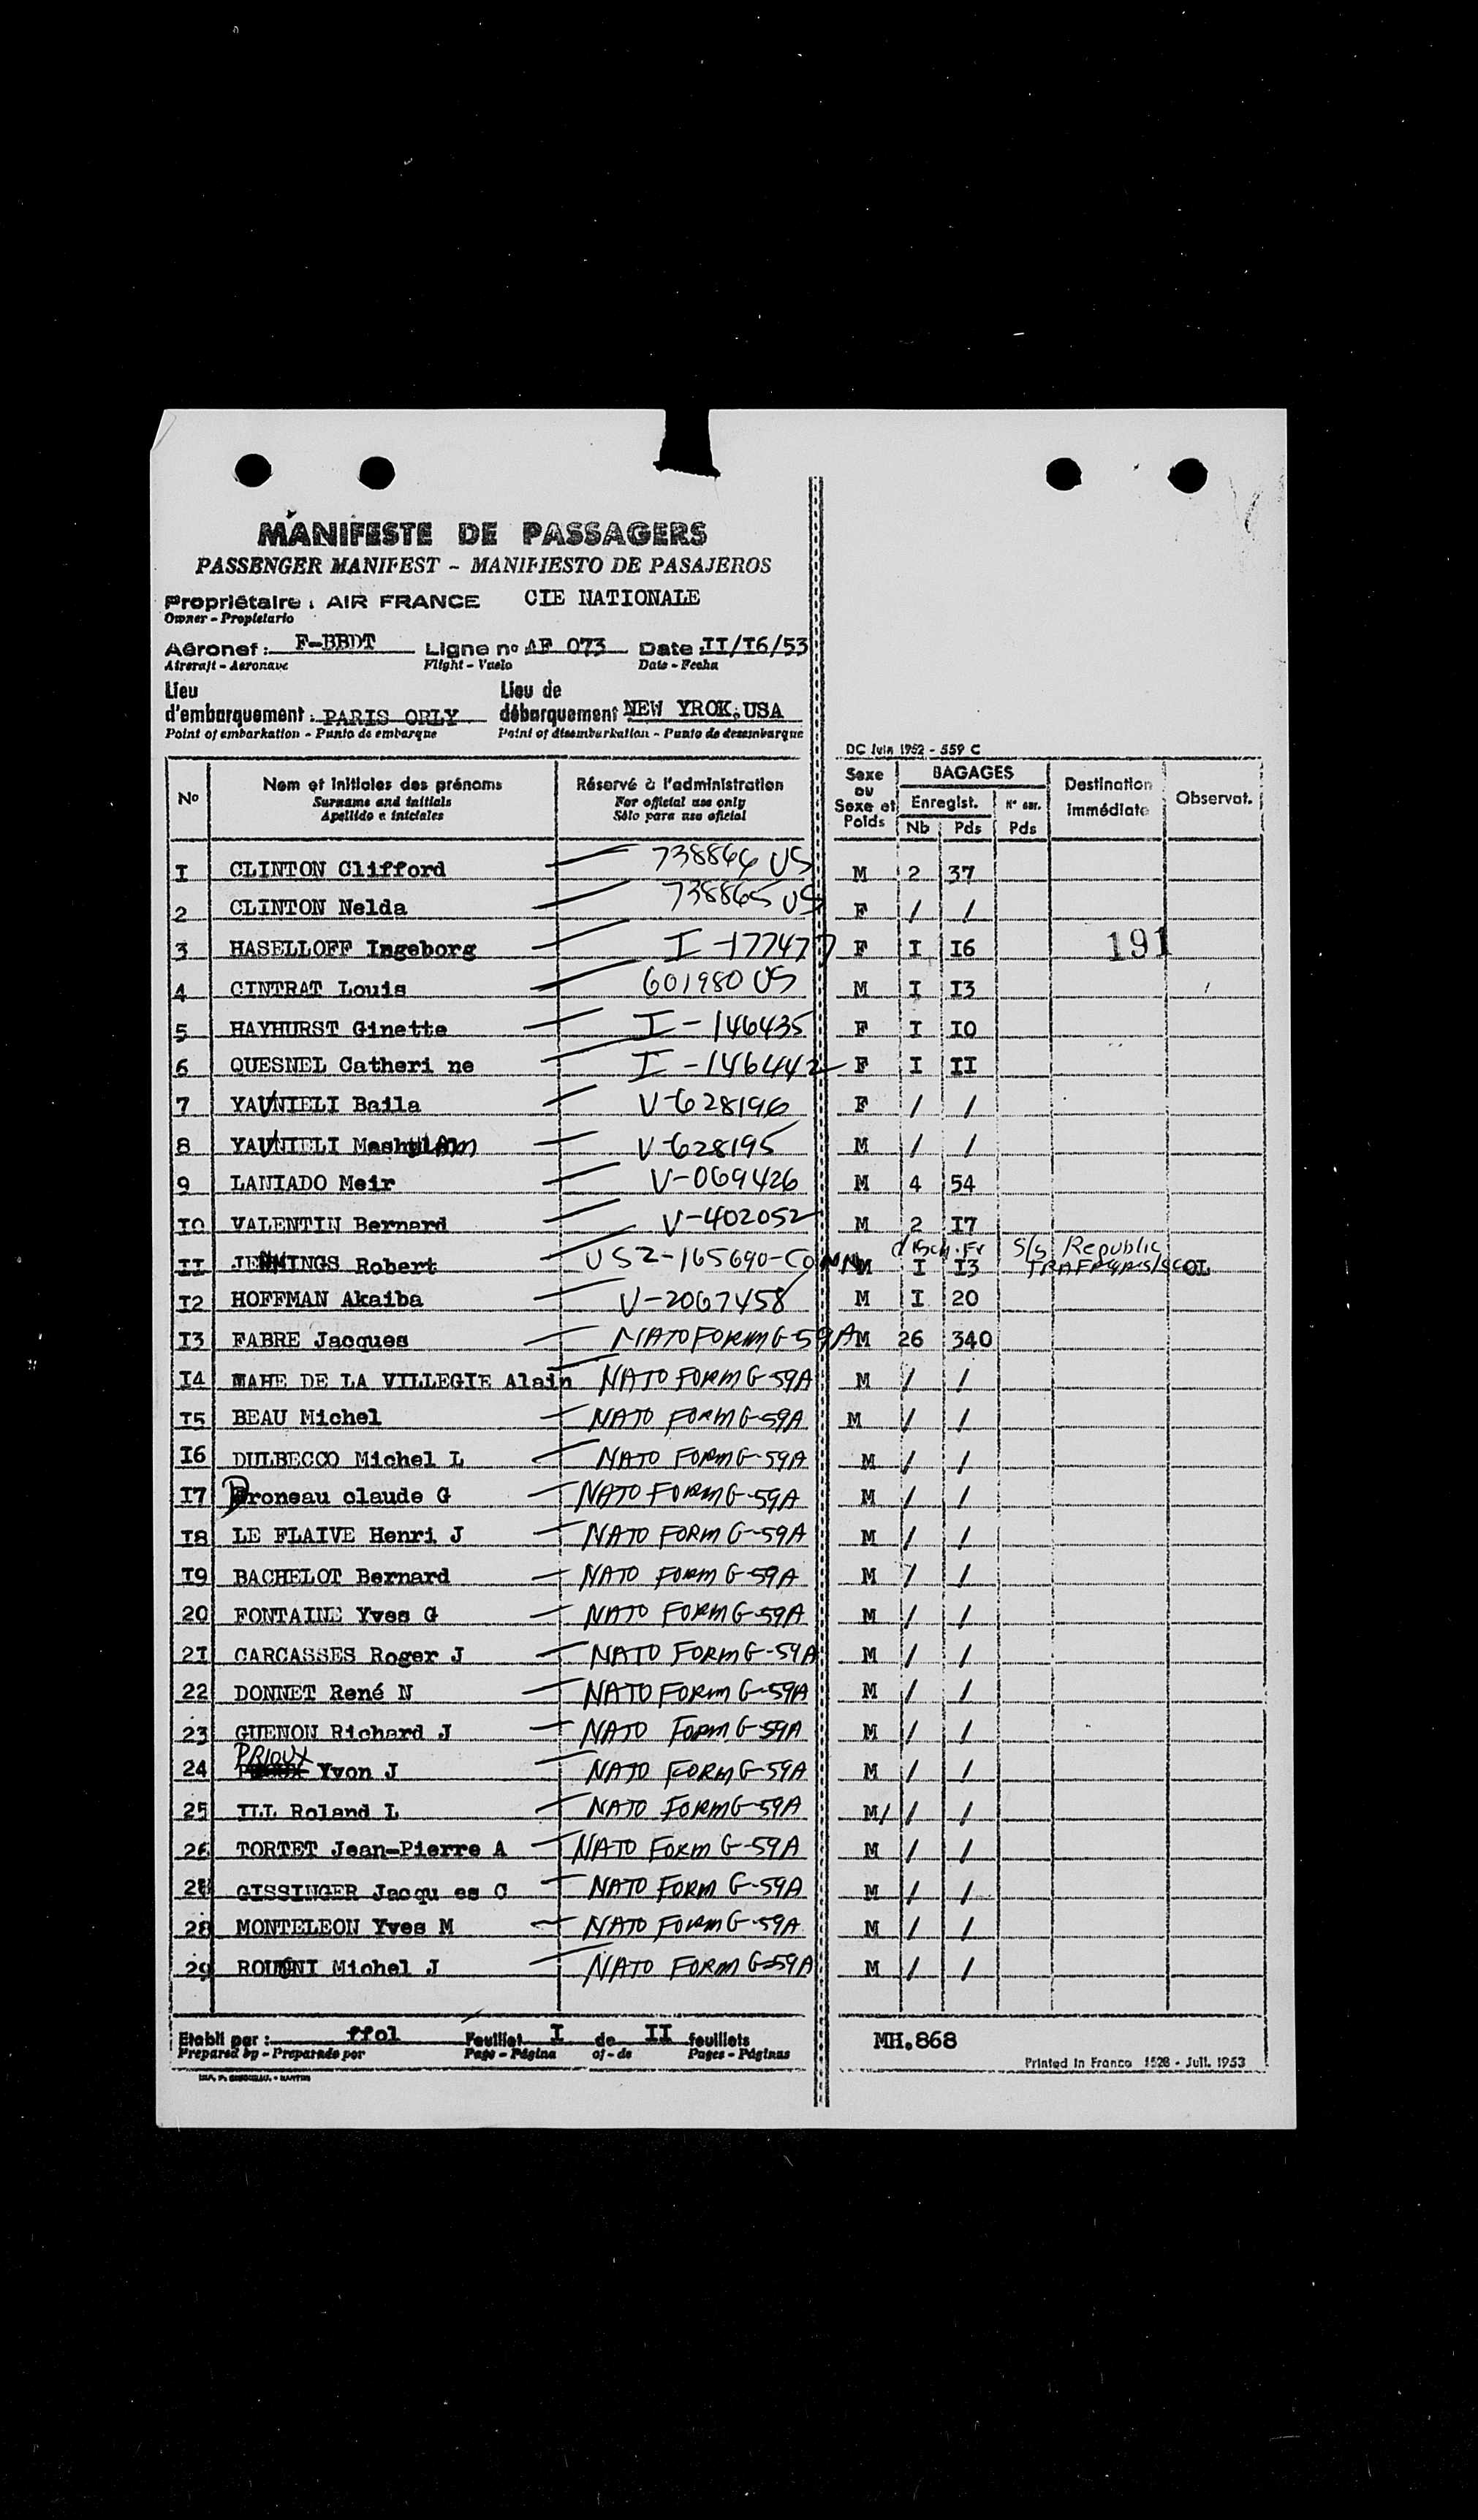 MANIFESTE DE PASSAGERS
PASSENGER MANIFEST - MANIFIESTO DE PASAJEROS
Propriétaire : AIR FRANCE CIE NATIONALE
Owner - Propietario
Aéronef : F-BBDT Ligne nº AF 073 Date II/I6/53
Aircraft - Aeronave Flight - Vuelo Date - Fecha
Lieu d'embarquement : PARIS ORLY Lieu de débarquement NEW YROK, USA
Point of embarkation - Punto de embarque Point of disembarkation - Punto de desembarque
DC Juin 1952 - 559 C
Nº Nom et initiales des prénoms Réservé à l'administration Sexe ou Sexe et Poids BAGAGES Destination immédiate Observat.
Surname and initials For official use only Enregist. Nº
Apellido e iniciales Sólo para uso oficial Nb Pds Pds
I CLINTON Clifford 738864 US M 2 37
2 CLINTON Nelda 738865 US F / /
3 HASELLOFF Ingeborg I-177477 F I I6 191
4 CINTRAT Louis 601980 US M I I3
5 HAYHURST Ginette I-146435 F I IO
6 QUESNEL Catheri ne I-146442 F I II
7 YAVNIELI Baila V-628196 F / /
8 YAVNIELI Meshulam V-628195 M / /
9 LANIADO Meir V-069426 M 4 54
IO VALENTIN Bernard V-402052 M 2 I7
disch. Fr S/S Republic
II JENNINGS Robert US Z-165690-CONN M I I3
I2 HOFFMAN Akaiba V-2067458 M I 20
I3 FABRE Jacques NATO FORM G-59A M 26 340
I4 MAHE DE LA VILLEGIE Alain NATO FORM G-59A M / /
I5 BEAU Michel NATO FORM G-59A M / /
I6 DULBECCO Michel L NATO FORM G-59A M / /
I7 Droneau claude G NATO FORM G-59A M / /
I8 LE FLAIVE Henri J NATO FORM G-59A M / /
I9 BACHELOT Bernard NATO FORM G-59A M / /
20 FONTAINE Yves G NATO FORM G-59A M / /
2I CARCASSES Roger J NATO FORM G-59A M / /
22 DONNET René N NATO FORM G-59A M / /
23 GUENON Richard J NATO FORM G-59A M / /
24 PRIOUX Yvon J NATO FORM G-59A M / /
25 ILL Roland L NATO FORM G-59A M/ / /
26 TORTET Jean-Pierre A NATO FORM G-59A M / /
GISSINGER Jacqu es C NATO FORM G-59A M / /
28 MONTELEON Yves M NATO FORM G-59A M / /
29 Michel J NATO FORM G-59A M / /
Etabli par : ffol Feuillet I de II feuillets MH.868
Prepared by - Preparado por Page - Página of - de Pages - Páginas
Printed in France 1528 - Juil. 1953